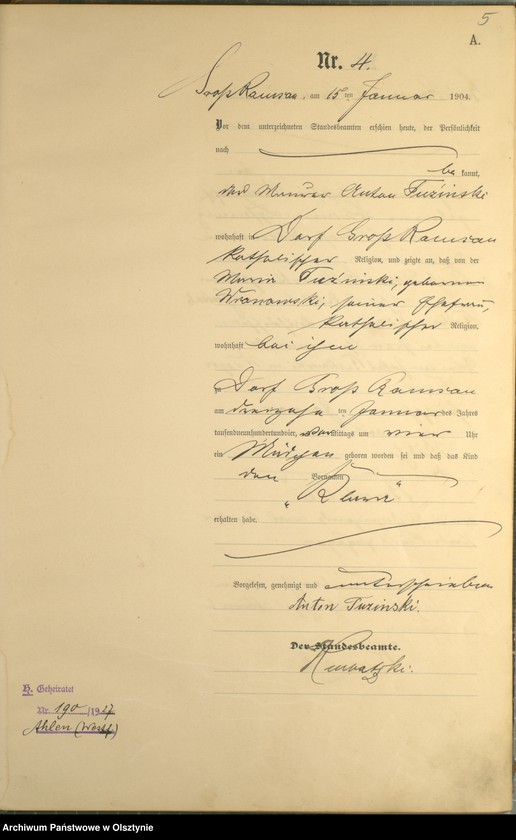 5
A.
Nr. 4.
Groß Ramsau, am 15ten Januar 1904.
Vor dem unterzeichneten Standesbeamten erschien heute, der Persönlichkeit
nach
be kannt,
der Maurer Anton Tuźinski
wohnhaft in Dorf Groß Ramsau
katholischer Religion, und zeigte an, daß von der
Maria Tuźinski, geborene
Wronowski, seiner Ehefrau,
katholischer Religion,
wohnhaft bei ihm
zu Dorf Groß Ramsau
am vierzehnten Januar des Jahres
tausendneunhundertundvier, mittags um vier Uhr
ein Mädchen geboren worden sei und daß das Kind
den Vornamen
"Klara"
erhalten habe.
Vorgelesen, genehmigt und unterschrieben
Anton Tuzinski.
Der Standesbeamte.
H. Geheiratet
Nr. 190/1927
Ahlen (Westf)
Archiwum Państwowe w Olsztynie